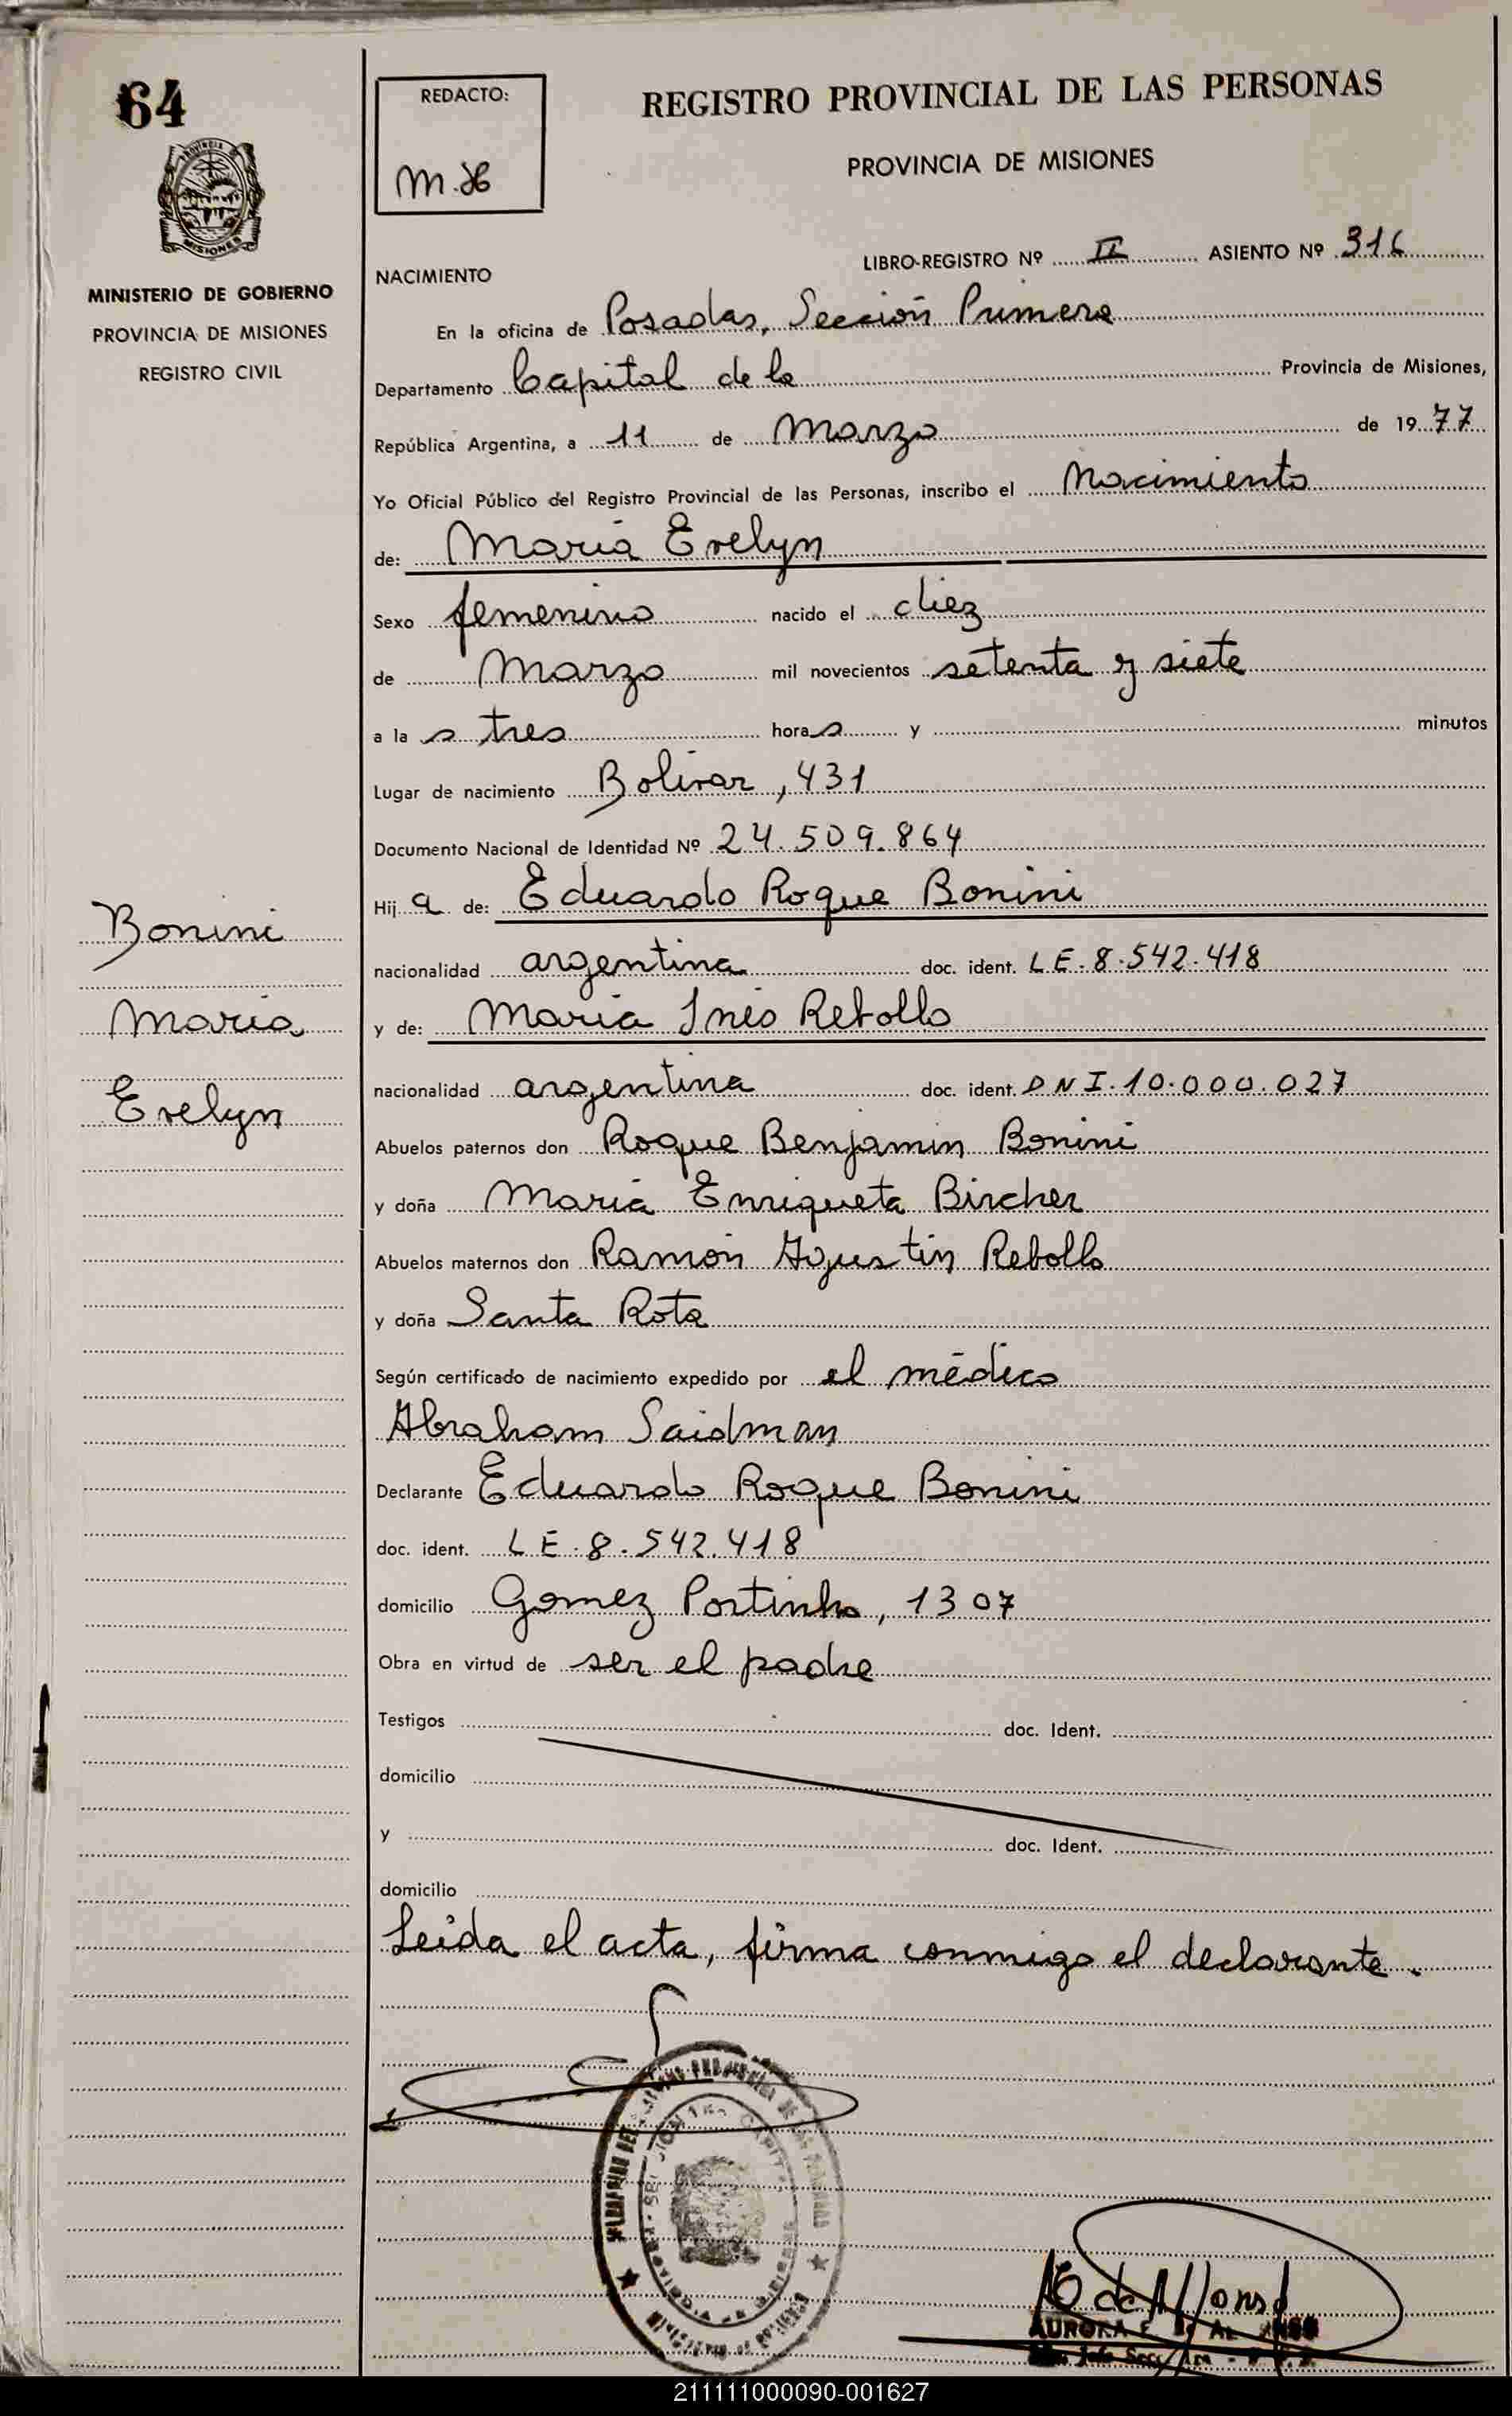 64
REDACTO:
M.H
REGISTRO PROVINCIAL DE LAS PERSONAS
PROVINCIA DE MISIONES
PROVINCIA
MISIONES
MINISTERIO DE GOBIERNO
PROVINCIA DE MISIONES
REGISTRO CIVIL
LIBRO-REGISTRO Nº II ASIENTO Nº 316
NACIMIENTO
En la oficina de Posadas, Sección Primera
Departamento Capital de la Provincia de Misiones,
República Argentina, a 11 de Marzo de 1977
Yo Oficial Público del Registro Provincial de las Personas, inscribo el Nacimiento
de: María Evelyn
Sexo femenino nacido el diez
de Marzo mil novecientos setenta y siete
a la s tres horas y minutos
Lugar de nacimiento Bolívar, 431
Documento Nacional de Identidad Nº 24.509.864
Hij a de: Eduardo Roque Bonini
nacionalidad argentina doc. ident. LE.8.542.418
y de: María Inés Rebollo
nacionalidad argentina doc. ident. DNI.10.000.027
Abuelos paternos don Roque Benjamin Bonini
y doña María Enriqueta Bircher
Abuelos maternos don Ramón Agustín Rebollo
y doña Santa Rota
Según certificado de nacimiento expedido por el médico
Abraham Saidman
Declarante Eduardo Roque Bonini
doc. ident. LE.8.542.418
domicilio Gomez Portinho, 1307
Obra en virtud de ser el padre
Testigos doc. Ident.
domicilio
y doc. Ident.
domicilio
Leída el acta, firma conmigo el declarante.
Bonini
María
Evelyn
AURORA E.
211111000090-001627